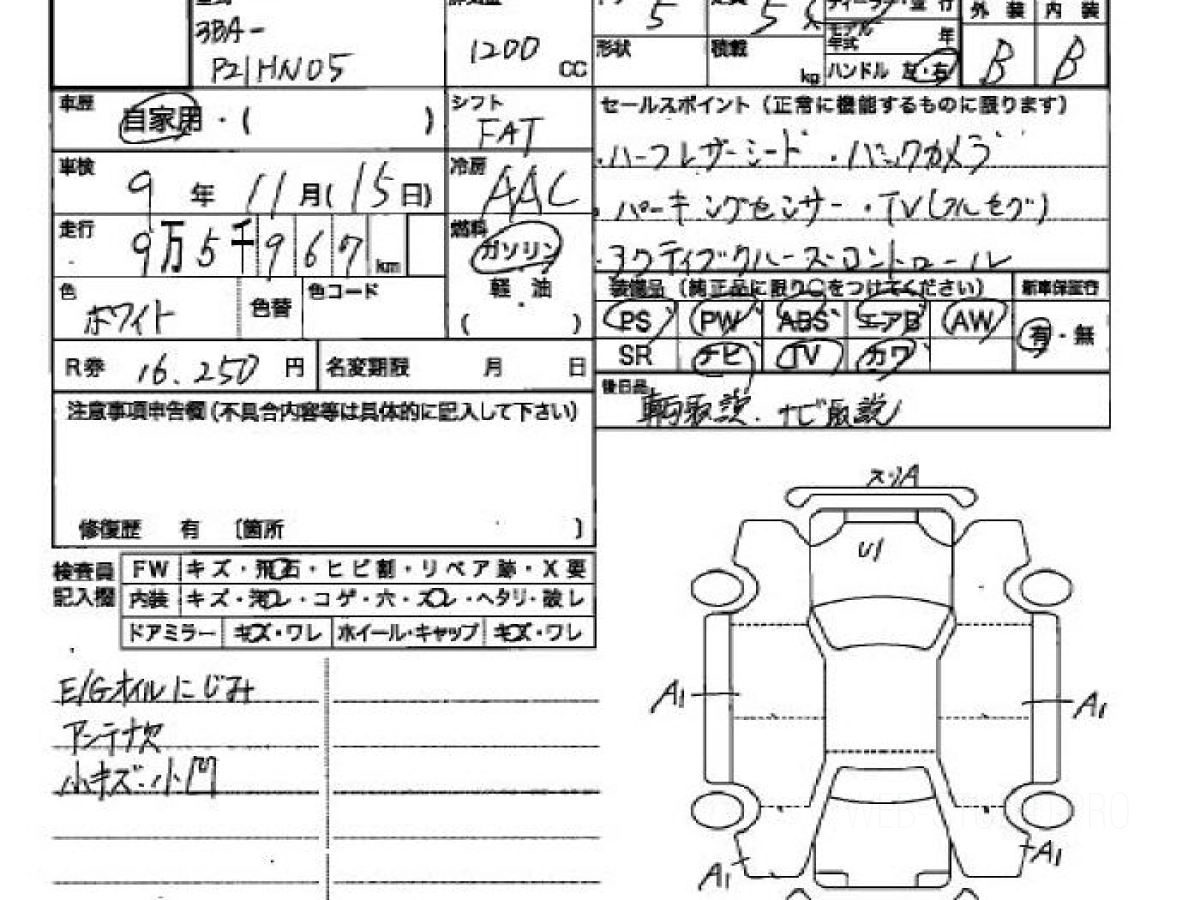 3BA-
P21HN05
1200 CC
5 5 人
形状 積載 kg
モデル年式 年
ハンドル 左・右
外装 内装
B B
車歴 自家用・( )
シフト FAT
セールスポイント (正常に機能するものに限ります)
・ハーフレザーシート ・バックカメラ
・パーキングセンサー ・TV(フルセグ)
・アクティブクルーズコントロール
車検 9 年 11 月 (15 日)
冷房 AAC
走行 9万5千967 km
燃料 ガソリン
軽油
( )
色 ホワイト 色替 色コード
装備品 (純正品に限り○をつけてください) 新車保証書
PS PW ABS エアB AW 有・無
SR ナビ TV カワ
R券 16.250 円 名変期限 月 日
後日品
車両取説.ナビ取説
注意事項申告欄 (不具合内容等は具体的に記入して下さい)
修復歴 有 〔箇所 〕
検査員記入欄
FW キズ・飛石・ヒビ割・リペア跡・X要
内装 キズ・汚レ・コゲ・穴・スレ・ヘタリ・破レ
ドアミラー キズ・ワレ ホイール・キャップ キズ・ワレ
E/Gオイルにじみ
アンテナ欠
小キズ・小凹
スリA
U1
A1 A1
A1 A1